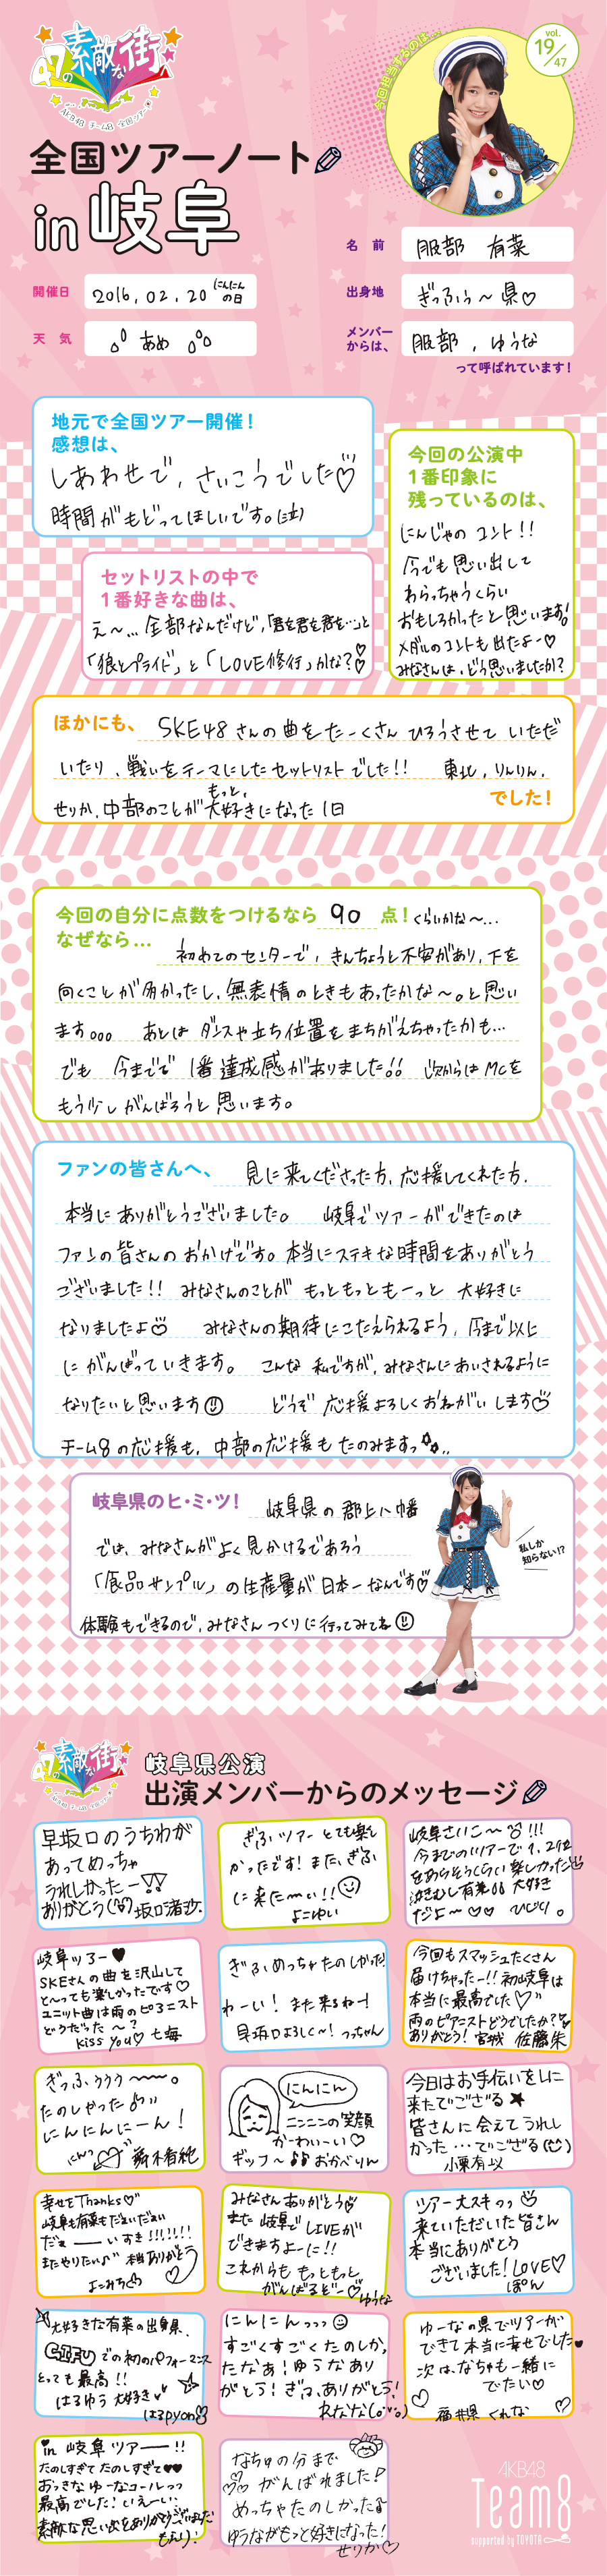 47の素敵な街へ
AKB48 チーム8 全国ツアー
今回担当するのは…
vol.
19/47
全国ツアーノート
in 岐阜
名 前
服部 有菜
開催日
2016.02.20 にんにんの日
出身地
ぎっふぅ〜県♡
天 気
あめ
メンバー
からは、
服部, ゆうな
って呼ばれています!
地元で全国ツアー開催!
感想は、
しあわせで、さいこうでした♡
時間がもどってほしいです。(泣)
今回の公演中
1番印象に
残っているのは、
にんじゃのコント!!
今でも思い出して
わらっちゃうくらい
おもしろかったと思います!
メダルのコントも出たよー♡
みなさんは、どう思いましたか?
セットリストの中で
1番好きな曲は、
え〜…全部なんだけど、「君を君を君を…」と
「狼とプライド」と「LOVE修行」かな?♡
ほかにも、
SKE48さんの曲をたーくさん ひろうさせて いただ
いたり、戦いをテーマにしたセットリストでした!! 東北、りんりん、
せりか、中部のことがもっと、大好きになった1日
でした!
今回の自分に点数をつけるなら 90 点! くらいかな〜…
なぜなら…
初めてのセンターで、きんちょうと不安があり、下を
向くことが多かったし、無表情のときもあったかな〜。と思い
ます。。。 あとは ダンスや立ち位置をまちがえちゃったかも…
でも 今までで 1番達成感がありました!! 次からはMCを
もう少しがんばろうと思います。
ファンの皆さんへ、
見に来てくださった方、応援してくれた方、
本当にありがとうございました。 岐阜でツアーができたのは
ファンの皆さんのおかげです。本当にステキな時間をありがとう
ございました!! みなさんのことが もっともっともーっと 大好きに
なりましたよ♡ みなさんの期待にこたえられるよう、今まで以上
にがんばっていきます。 こんな私ですが、みなさんにあいされるように
なりたいと思います どうぞ 応援よろしくおねがいします♡
チーム8の応援も、中部の応援もたのみますっ
岐阜県のヒ・ミ・ツ!
岐阜県の 郡上八幡
では、みなさんがよく見かけるであろう
「食品サンプル」の生産量が日本一なんです♡
体験もできるので、みなさん つくりに行ってみてね
私しか
知らない!?
47の素敵な街へ
AKB48 チーム8 全国ツアー
岐阜県公演
出演メンバーからのメッセージ
早坂口のうちわが
あってめっちゃ
うれしかったー!!
ありがとう 坂口渚沙.
ぎふツアー とても楽し
かったです! また、ぎふ
に来た〜い!!
よこゆい
岐阜さいこ〜!!!
今までのツアーで1、2位
をあらそうくらい楽しかった
泣きむし有菜 大好き
だよ〜♡♡ ひじり。
岐阜ツアー♥
SKEさんの曲を沢山して
と〜っても楽しかったです♡
ユニット曲は雨のピアニスト
どうだった〜?
Kiss you♡ 七海
ぎふめっちゃたのしかった!
わーい! また来るねー!
早坂口よろしく〜! つっちゃん
今回もスマッシュたくさん
届けちゃったー!! 初岐阜は
本当に最高でした♡
雨のピアニストどうでしたか?
ありがとう! 宮城 佐藤朱
ぎっふぅぅぅ〜〜。
たのしかった♪
にんにんにーん!
にんにん
ニンニンの笑顔
かーわいーい♡
ギッフ〜♪♪ おかべりん
今日はお手伝いをしに
来たでござる★
皆さんに会えてうれし
かった…でござる
小栗有以
幸せをThanks♡
岐阜も有菜もだぁいだぁい
だぁーーいすき!!!!!!!
またやりたい♪ 本当ありがとう
よこみち
みなさんありがとう
また岐阜でLIVEが
できますよーに!!
これからも もっともっと
がんばるぞー♡ ゆうな
ツアー大スキっっ
来ていただいた皆さん
本当にありがとう
ございました! LOVE♡
ぽん
大好きな有菜の出身県、
GIFUでの初のパフォーマンス
とっても最高!!
はるゆう 大好き
はるpyon
にんにんっっっ
すごくすごくたのしか
たなぁ! ゆうなあり
がとう! ぎふ、ありがとう!
れなな(。'▽'。)
ゆーなの県でツアーが
できて本当に幸せでした♥
次は、なちゅも一緒に
でたい♡
福井県 くれな
in 岐阜ツアーー!!
たのしすぎてたのしすぎて♥♥
おっきなゆーなコールっっ
最高でした! いえーい
素敵な思い出をありがとうございました
もえり!
なちゅの分まで
がんばれました!
めっちゃたのしかった♪
ゆうながもっと好きになった!
せりか♡
AKB48
Team8
supported by TOYOTA